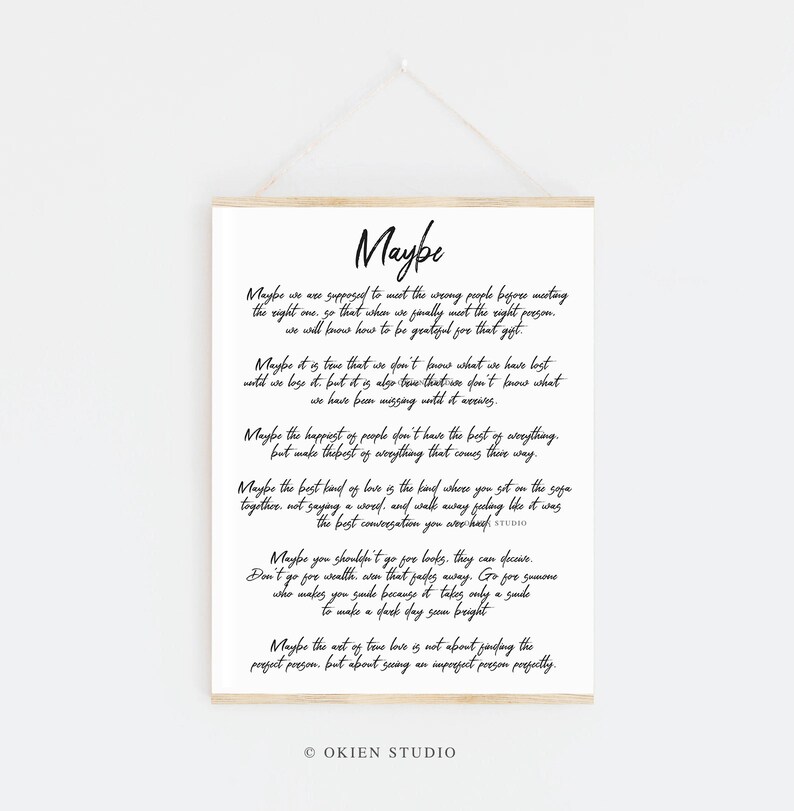 Maybe
Maybe we are supposed to meet the wrong people before meeting
the right one, so that when we finally meet the right person,
we will know how to be grateful for that gift.
Maybe it is true that we don't know what we have lost
until we lose it, but it is also true that we don't know what
we have been missing until it arrives.
Maybe the happiest of people don't have the best of everything,
but make thebest of everything that comes their way.
Maybe the best kind of love is the kind where you sit on the sofa
together, not saying a word, and walk away feeling like it was
the best conversation you ever had. STUDIO
Maybe you shouldn't go for looks, they can deceive.
Don't go for wealth, even that fades away, Go for sumone
who makes you smile because it takes only a smile
to make a dark day seem bright
Maybe the art of true love is not about finding the
perfect person, but about seeing an imperfect person perfectly.
© OKIEN STUDIO